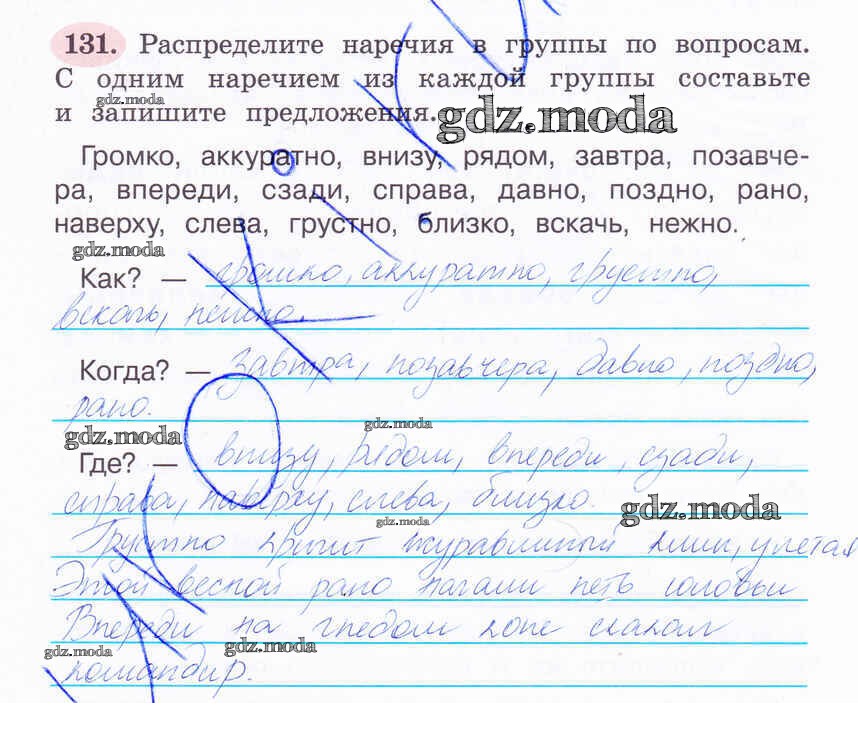 131. Распределите наречия в группы по вопросам.
С одним наречием из каждой группы составьте
и запишите предложения.
gdz.moda
gdz.moda
Громко, аккуратно, внизу, рядом, завтра, позавче-
ра, впереди, сзади, справа, давно, поздно, рано,
наверху, слева, грустно, близко, вскачь, нежно.
gdz.moda
Как? — громко, аккуратно, грустно,
вскачь, нежно.
Когда? — завтра, позавчера, давно, поздно,
рано.
gdz.moda
gdz.moda
Где? — внизу, рядом, впереди, сзади,
справа, наверху, слева, близко.
gdz.moda
gdz.moda
Грустно кричит журавлиный клин, улетая
Этой весной рано начали петь соловьи
Впереди на гнедом коне скакал
gdz.moda
gdz.moda
командир.